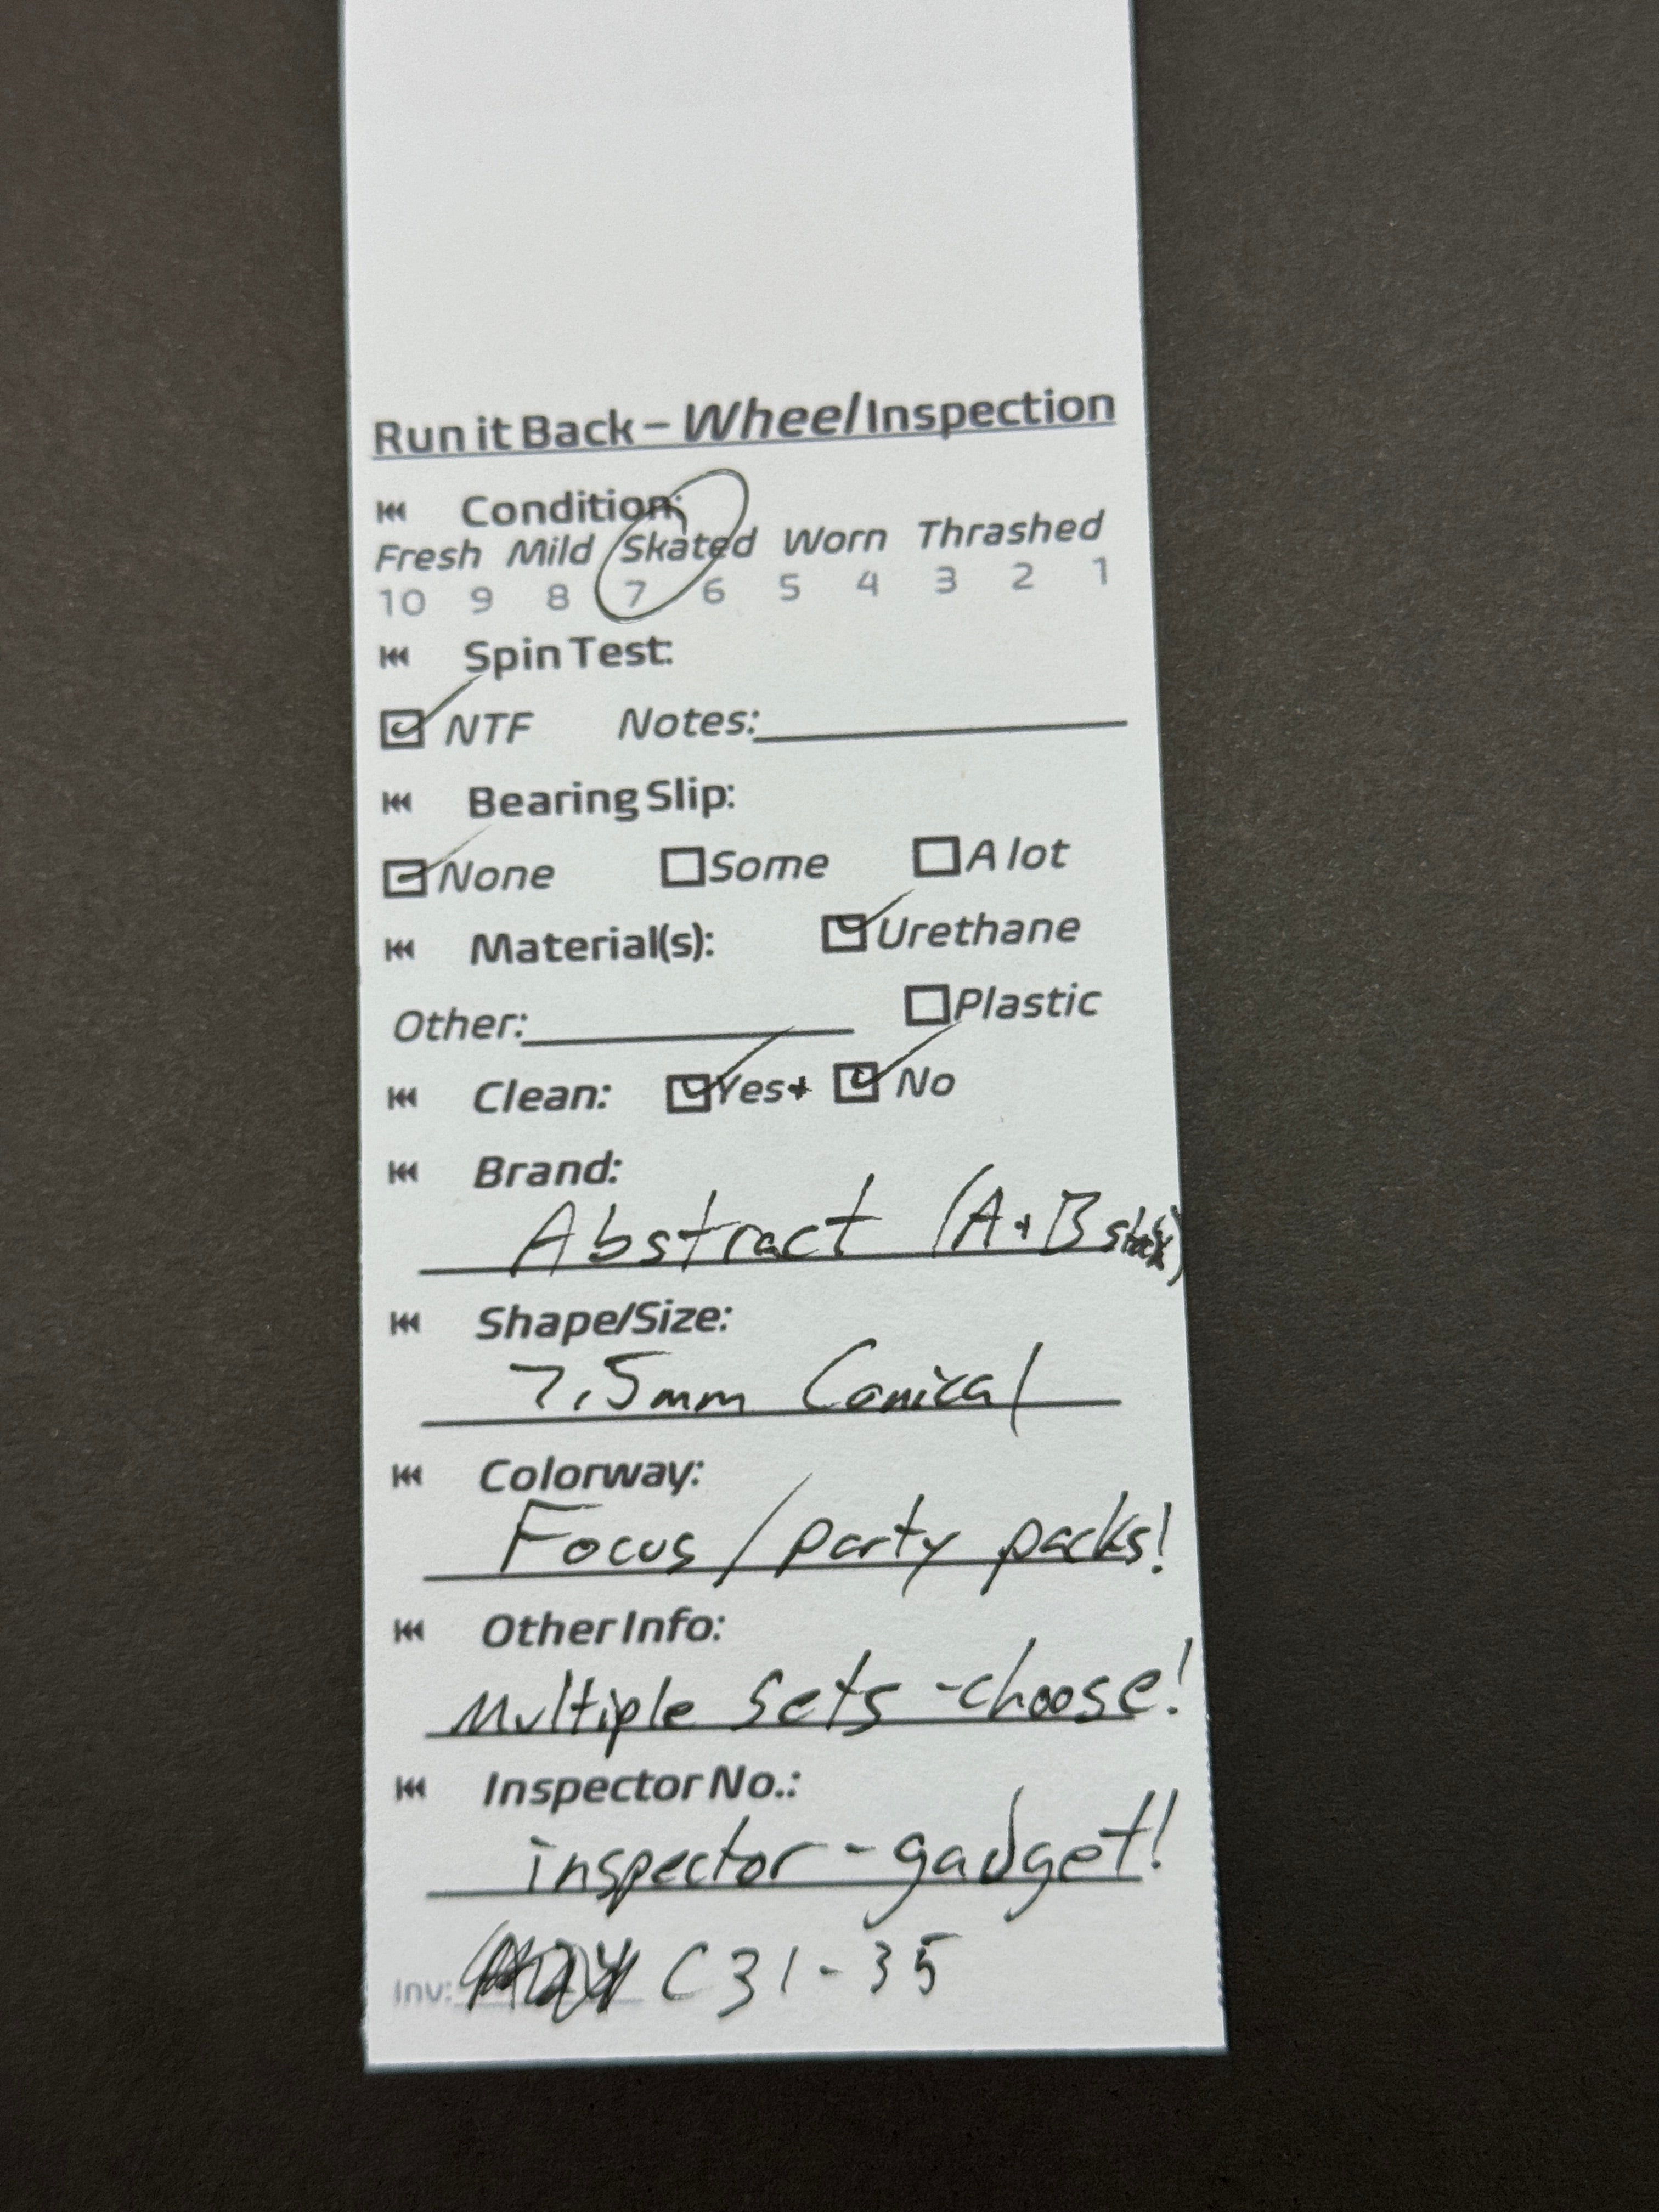 Run it Back – Wheel Inspection
Condition:
Fresh Mild Skated Worn Thrashed
10 9 8 7 6 5 4 3 2 1
Spin Test:
NTF Notes:
Bearing Slip:
None Some A lot
Material(s): Urethane
Other: Plastic
Clean: Yes + No
Brand:
Abstract (A+B stock)
Shape/Size:
7.5mm Conical
Colorway:
Focus / party packs!
Other Info:
Multiple Sets - choose!
Inspector No.:
inspector - gadget!
Inv: C31-35